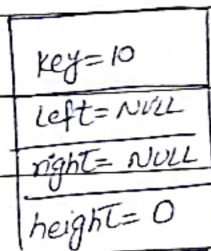 key=10
left=NULL
right=NULL
height=0